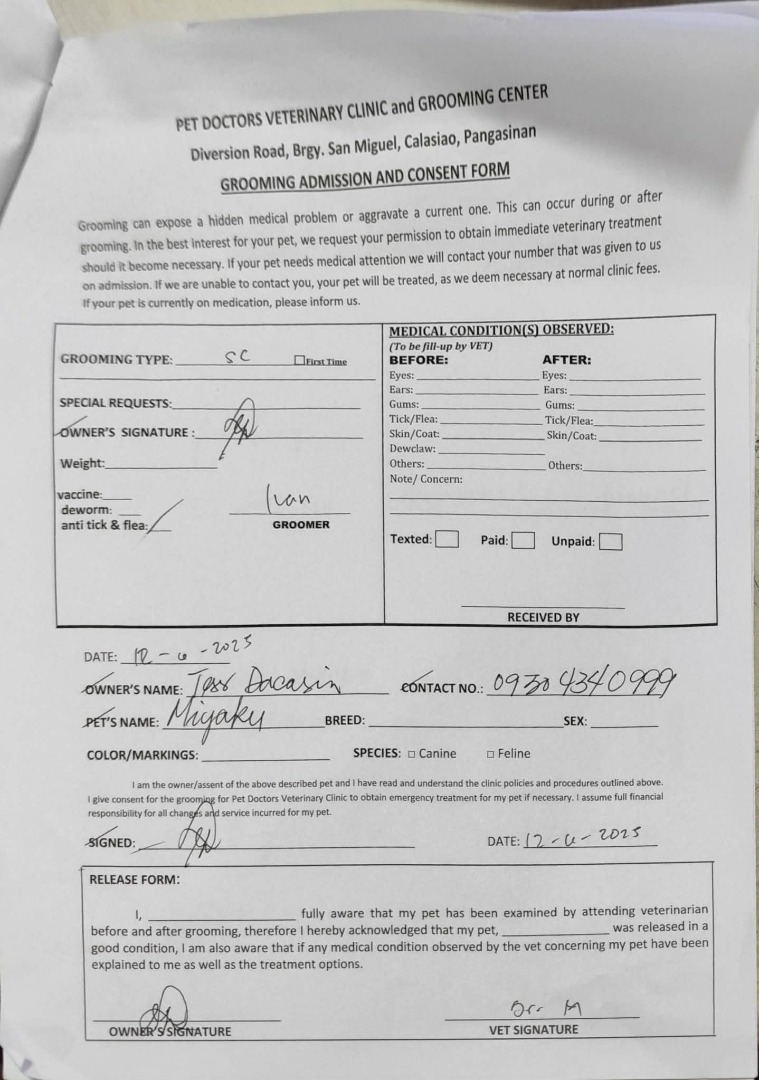 PET DOCTORS VETERINARY CLINIC and GROOMING CENTER
Diversion Road, Brgy. San Miguel, Calasiao, Pangasinan
GROOMING ADMISSION AND CONSENT FORM
Grooming can expose a hidden medical problem or aggravate a current one. This can occur during or after
grooming. In the best interest for your pet, we request your permission to obtain immediate veterinary treatment
should it become necessary. If your pet needs medical attention we will contact your number that was given to us
on admission. If we are unable to contact you, your pet will be treated, as we deem necessary at normal clinic fees.
If your pet is currently on medication, please inform us.
GROOMING TYPE: SC First Time
SPECIAL REQUESTS:
OWNER'S SIGNATURE :
Weight:
vaccine:
deworm:
anti tick & flea:
Ivan
GROOMER
MEDICAL CONDITION(S) OBSERVED:
(To be fill-up by VET)
BEFORE: AFTER:
Eyes: Eyes:
Ears: Ears:
Gums: Gums:
Tick/Flea: Tick/Flea:
Skin/Coat: Skin/Coat:
Dewclaw:
Others: Others:
Note/ Concern:
Texted: Paid: Unpaid:
RECEIVED BY
DATE: 12-6-2025
OWNER'S NAME: Tess Dacasin CONTACT NO.: 0930 4340999
PET'S NAME: Miyaku BREED: SEX:
COLOR/MARKINGS: SPECIES: Canine Feline
I am the owner/assent of the above described pet and I have read and understand the clinic policies and procedures outlined above.
I give consent for the grooming for Pet Doctors Veterinary Clinic to obtain emergency treatment for my pet if necessary. I assume full financial
responsibility for all changes and service incurred for my pet.
SIGNED: DATE: 12-6-2025
RELEASE FORM:
I, fully aware that my pet has been examined by attending veterinarian
before and after grooming, therefore I hereby acknowledged that my pet, was released in a
good condition, I am also aware that if any medical condition observed by the vet concerning my pet have been
explained to me as well as the treatment options.
OWNER'S SIGNATURE VET SIGNATURE